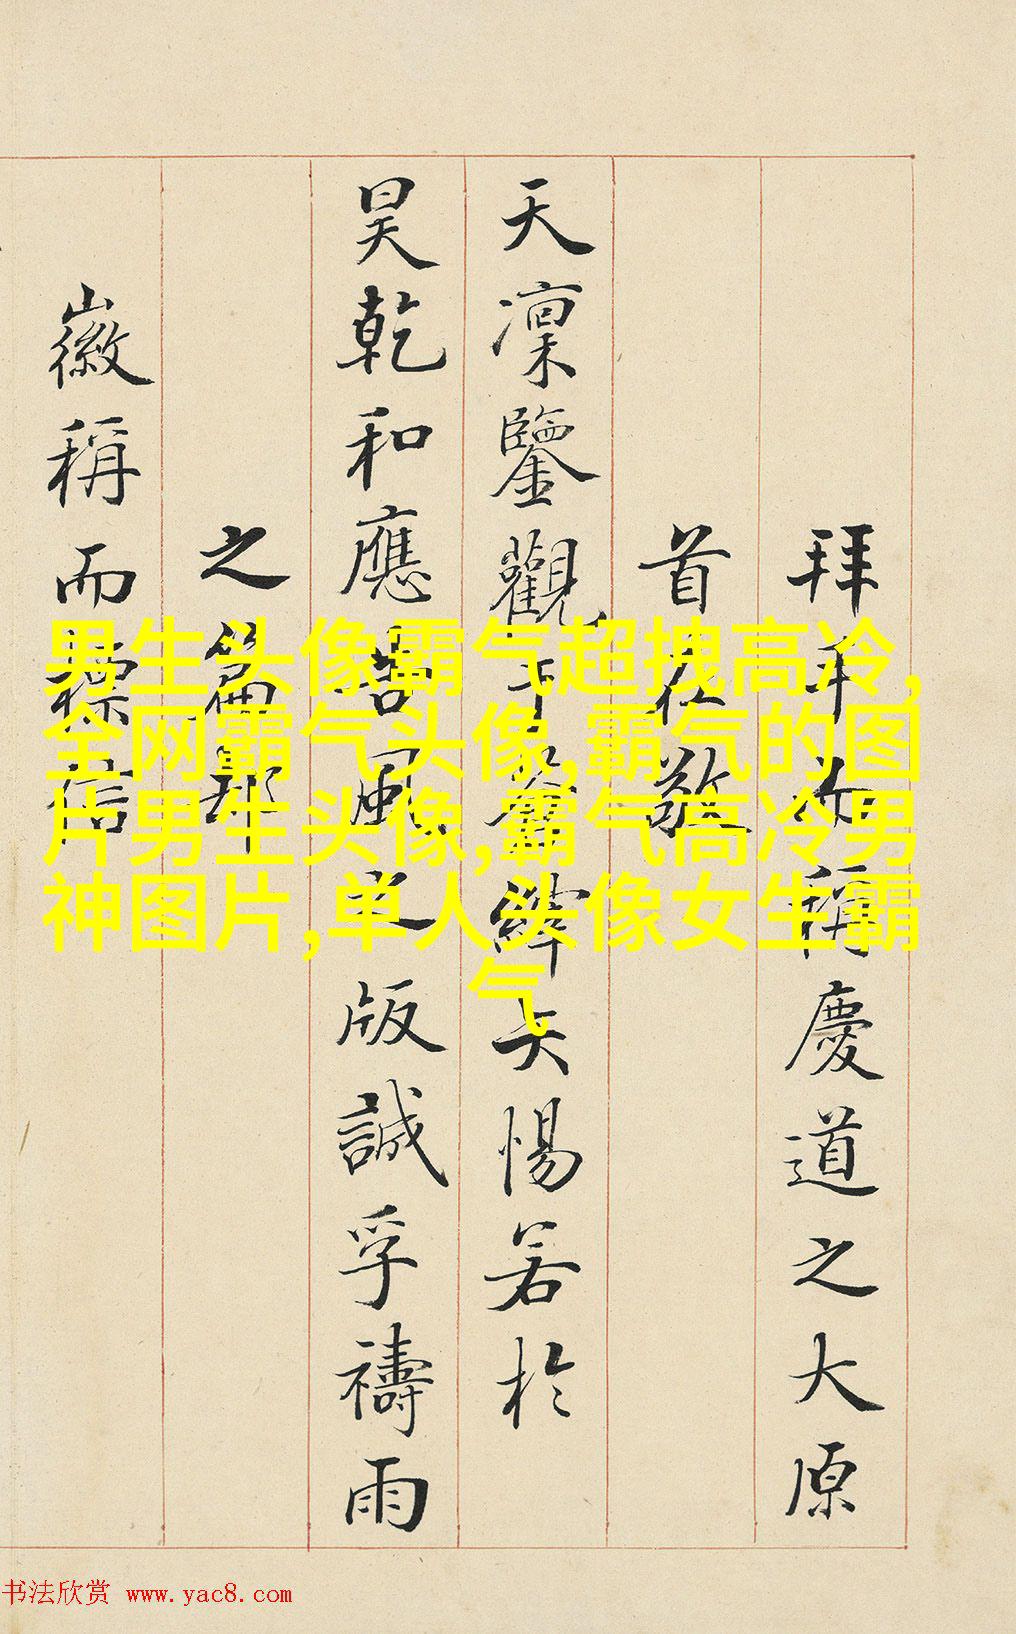 拜手而稱慶道之大原
首在敬
天凜鑒觀於
暘若於
昊乾和應
風之版誠孚禱雨
之篇
徽稱而標信
男生头像霸气超拽高冷,
全网霸气头像,霸气的图
片男生头像,霸气高冷男
神图片,单人头像女生霸
气
书法欣赏 www.yac8.com